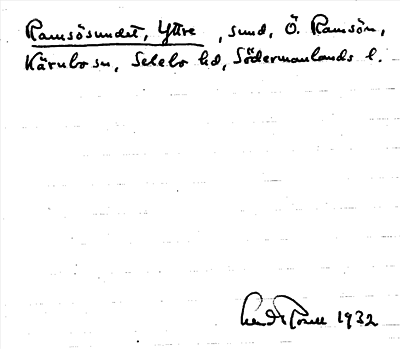 Ramsösundet, Yttre, sund, Ö. Ramsön,
Kärnbo sn, Selebo hd, Södermanlands l.
1932